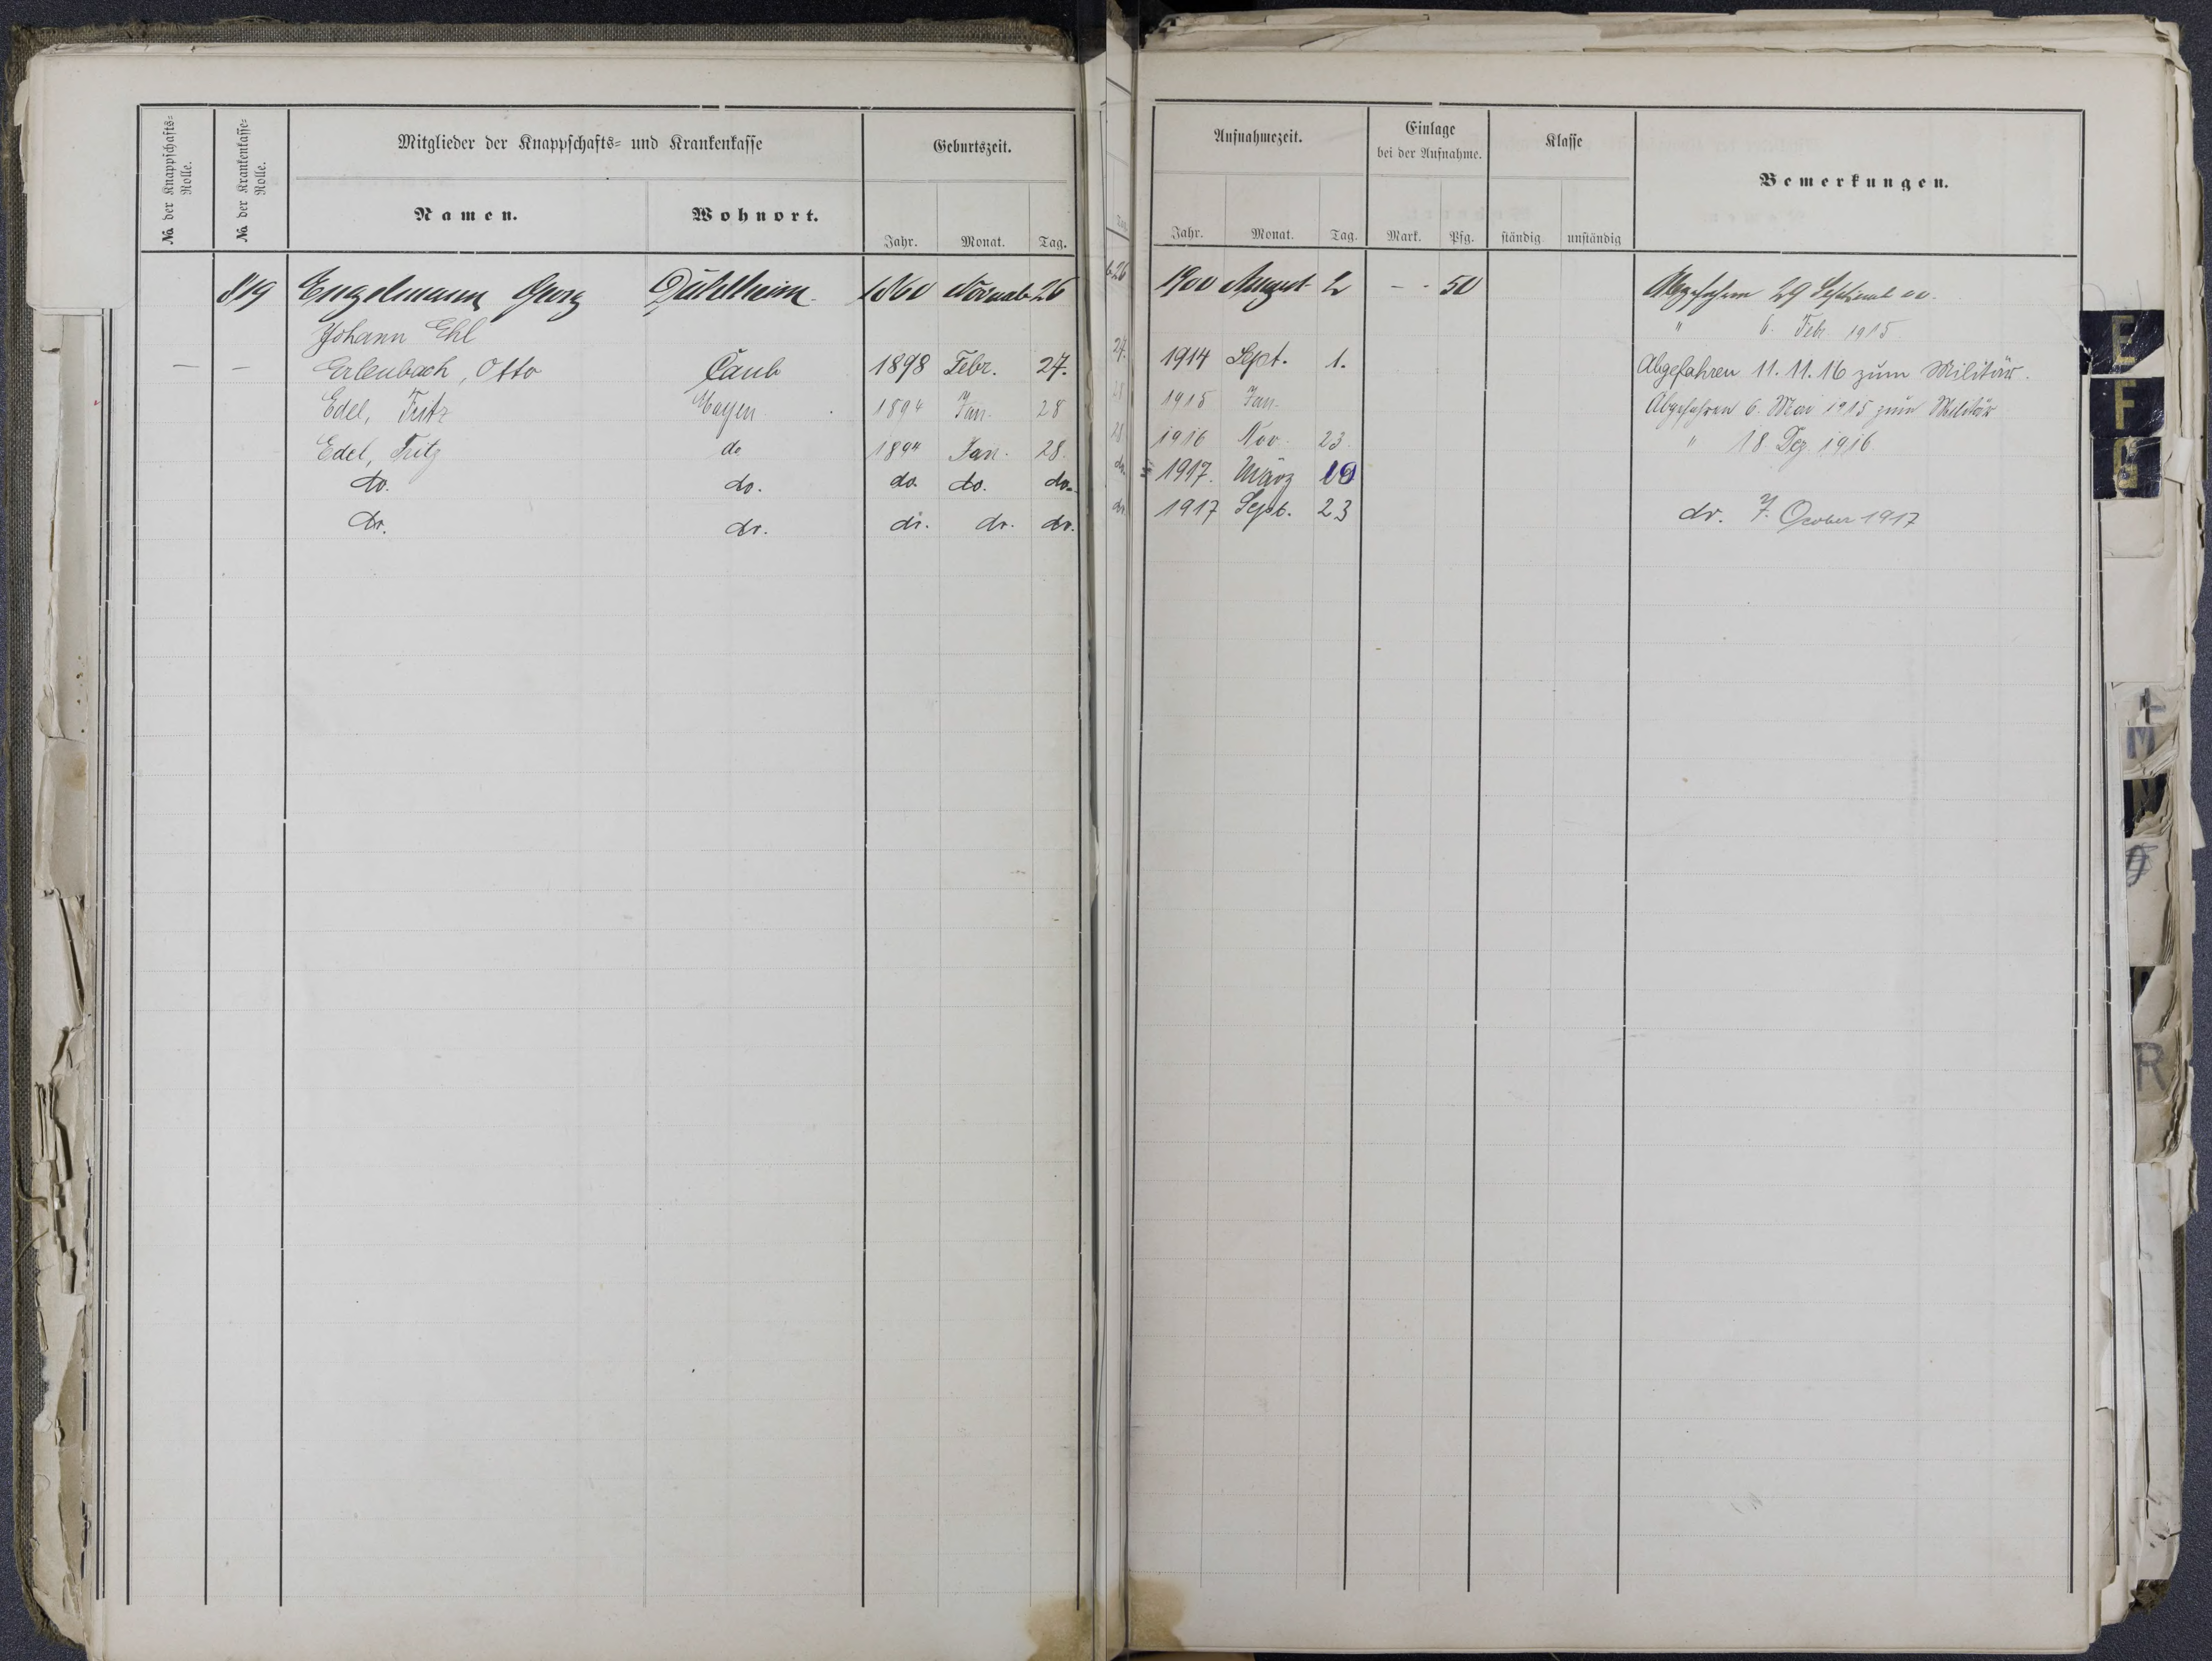 № der Knappschafts=Rolle.
№ der Krankenkasse=Rolle.
Mitglieder der Knappschafts= und Krankenkasse
Namen.
Wohnort.
Geburtszeit.
Jahr. Monat. Tag.
Aufnahmezeit.
Jahr. Monat. Tag.
Einlage
bei der Aufnahme.
Mark. Pfg.
Klasse
ständig unständig
Bemerkungen.
819 Engelmann Georg 1860 Novemb 26 1900 August 2 - - 50 Abgefahren 29 Septemb 00.
Johann Ehl " 6. Feb. 1915
— — Erlenbach, Otto Caub 1898 Febr. 27. 1914 Sept. 1. Abgefahren 11. 11. 16 zum Militär.
Edel, Fritz Mayen 1894 Jan. 28 1915 Jan. Abgefahren 6. Mai 1915 zum Militär
Edel, Fritz do 1894 Jan. 28. 1916 Nov. 23. " 18. Dez. 1916
do. do. do. do. do. 1917. März
do. do. do. do. do. 1917 Sept. 23 do. 7. Ocober 1917
E
F
G
M
N
R